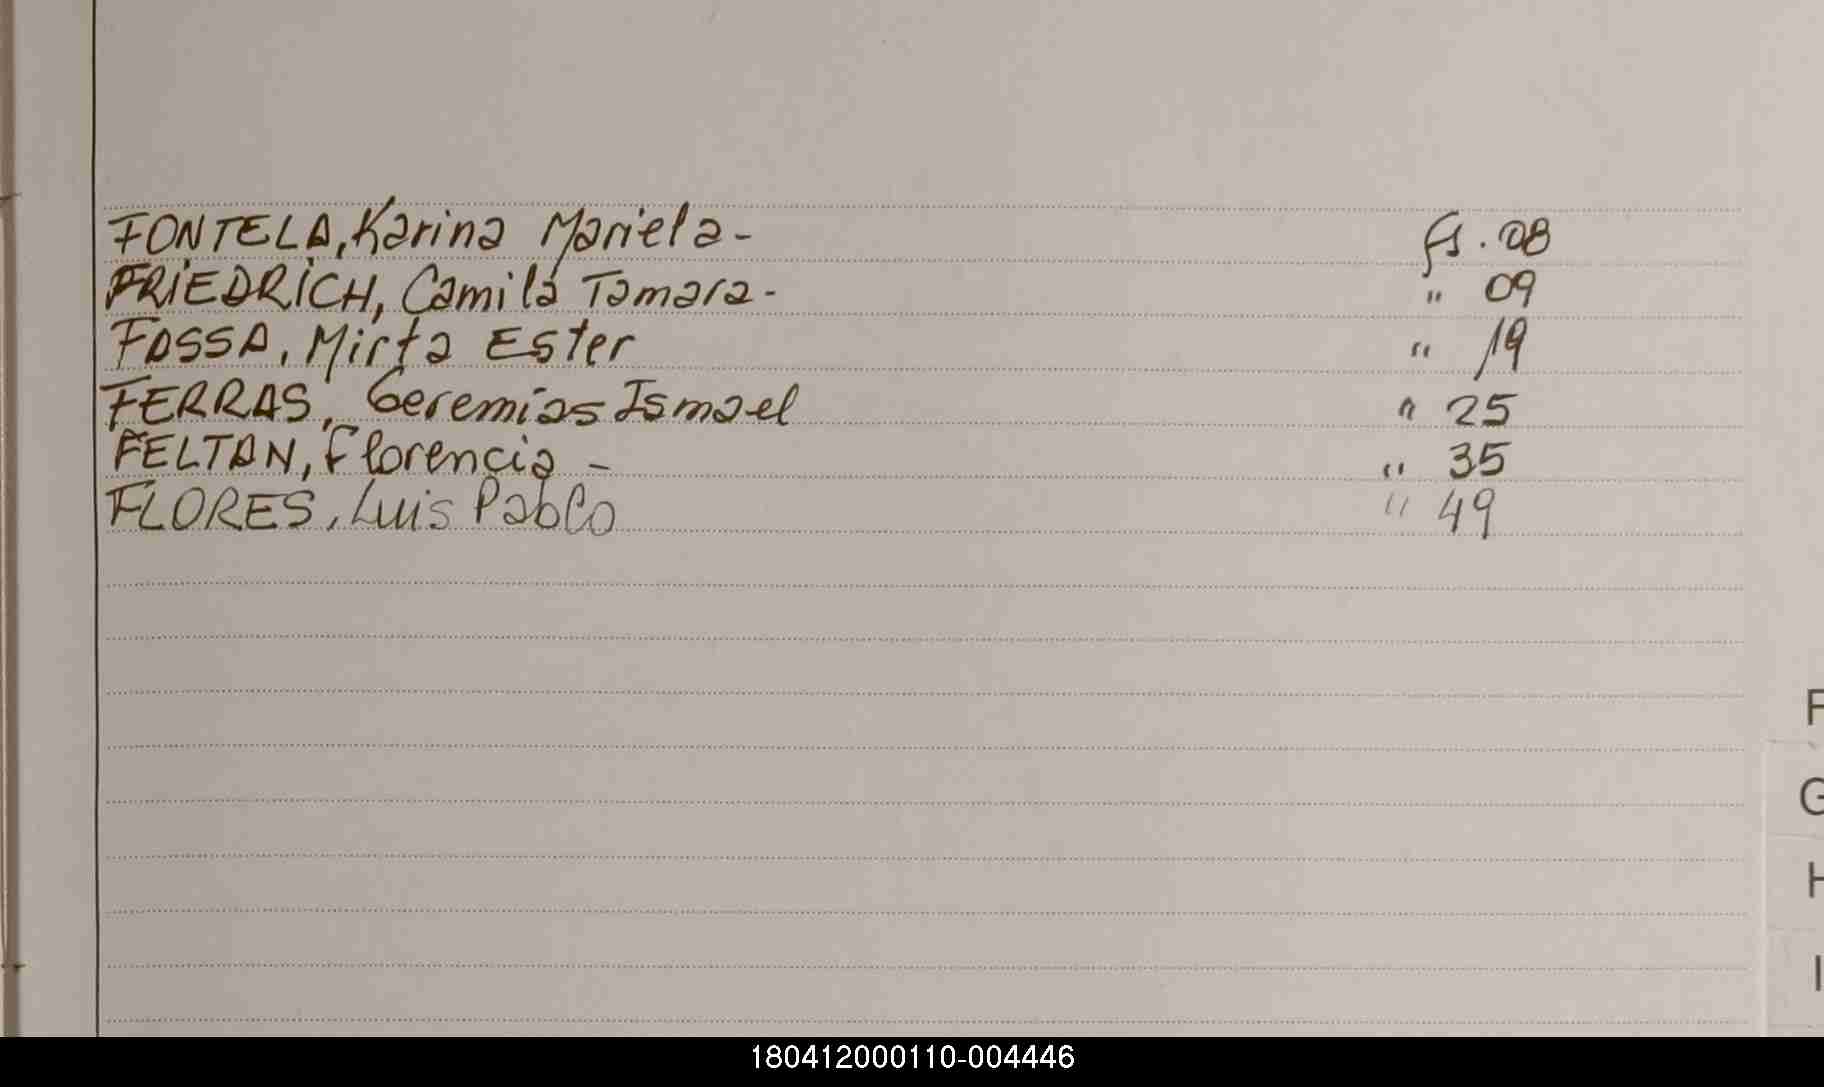 FONTELA, Karina Mariela - fs. 08
FRIEDRICH, Camila Tamara - " 09
FASSA, Mirta Ester " 19
FERRAS, Geremias Ismael " 25
FELTAN, Florencia - " 35
FLORES, Luis Pablo " 49
F
G
H
I
180412000110-004446